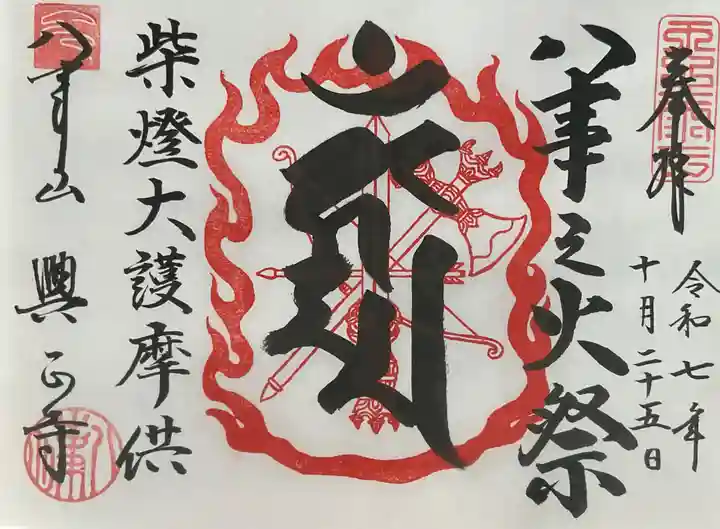 奉拝
令和七年
十月二十五日
八事之火祭
柴燈大護摩供
八事山
興正寺